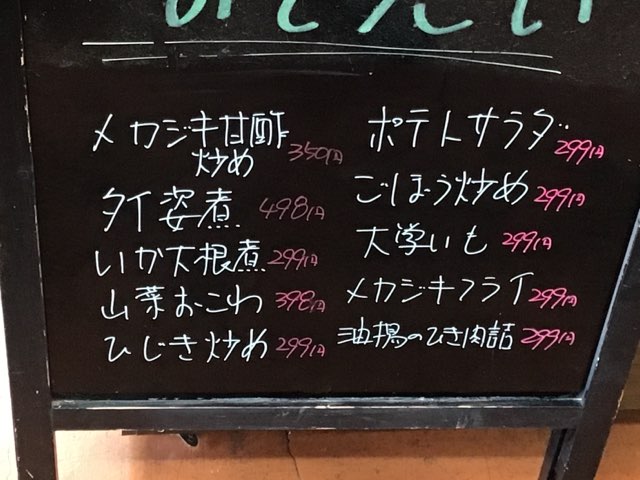 メカジキ甘酢
炒め 350円
タイ姿煮 498円
いか大根煮 299円
山菜おこわ 398円
ひじき炒め 299円
ポテトサラダ 299円
ごぼう炒め 299円
大学いも 299円
メカジキフライ 299円
油揚のひき肉詰 299円